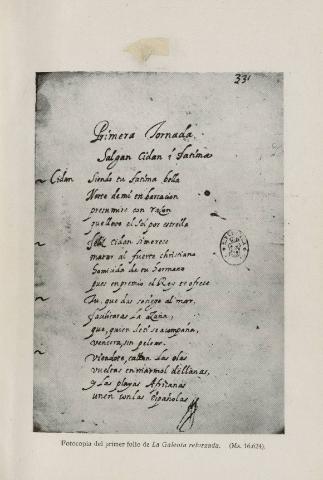 331
Primera Jornada.
Salgan Cidan i Fatima
Cidan Siendo tu fatima bella
Norte de mi enbarcacion
presumire con raçon
que llevo el Sol por estrella
feliz Cidan si merece
matar al fuerte christiano
homicida de tu hermano
pues en premio el Rey te ofrece
Tu, que das al mar,
facilitaras la açaña,
que, quien se acompaña,
vencera, sin pelear.
Viendote, las olas
vueltas en marmol
y las playas Africanas
unen con las Españolas
Fotocopia del primer folio de La Galeota reforzada. (Ms. 16.624).